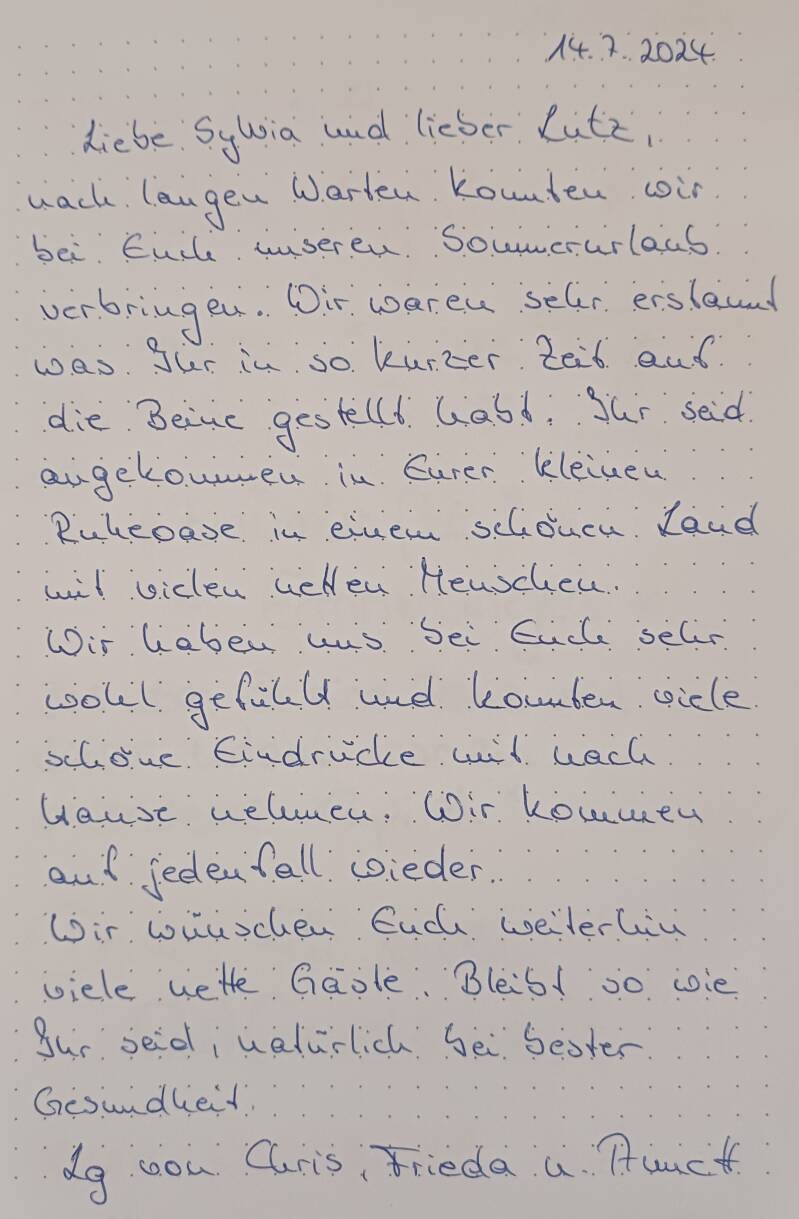 14.7.2024
Liebe Sylvia und lieber Lutz,
nach langen Warten konnten wir
bei Euch unseren Sommerurlaub
verbringen. Wir waren sehr erstaunt
was Ihr in so kurzer Zeit auf
die Beine gestellt habt. Ihr seid
angekommen in Eurer kleinen
Ruheoase in einem schönen Land
mit vielen netten Menschen.
Wir haben uns bei Euch sehr
wohl gefühlt und konnten viele
schöne Eindrücke mit nach
Hause nehmen. Wir kommen
auf jedenfall wieder.
Wir wünschen Euch weiterhin
viele nette Gäste. Bleibt so wie
Ihr seid, natürlich bei bester
Gesundheit.
Lg von Chris, Frieda u. Annett